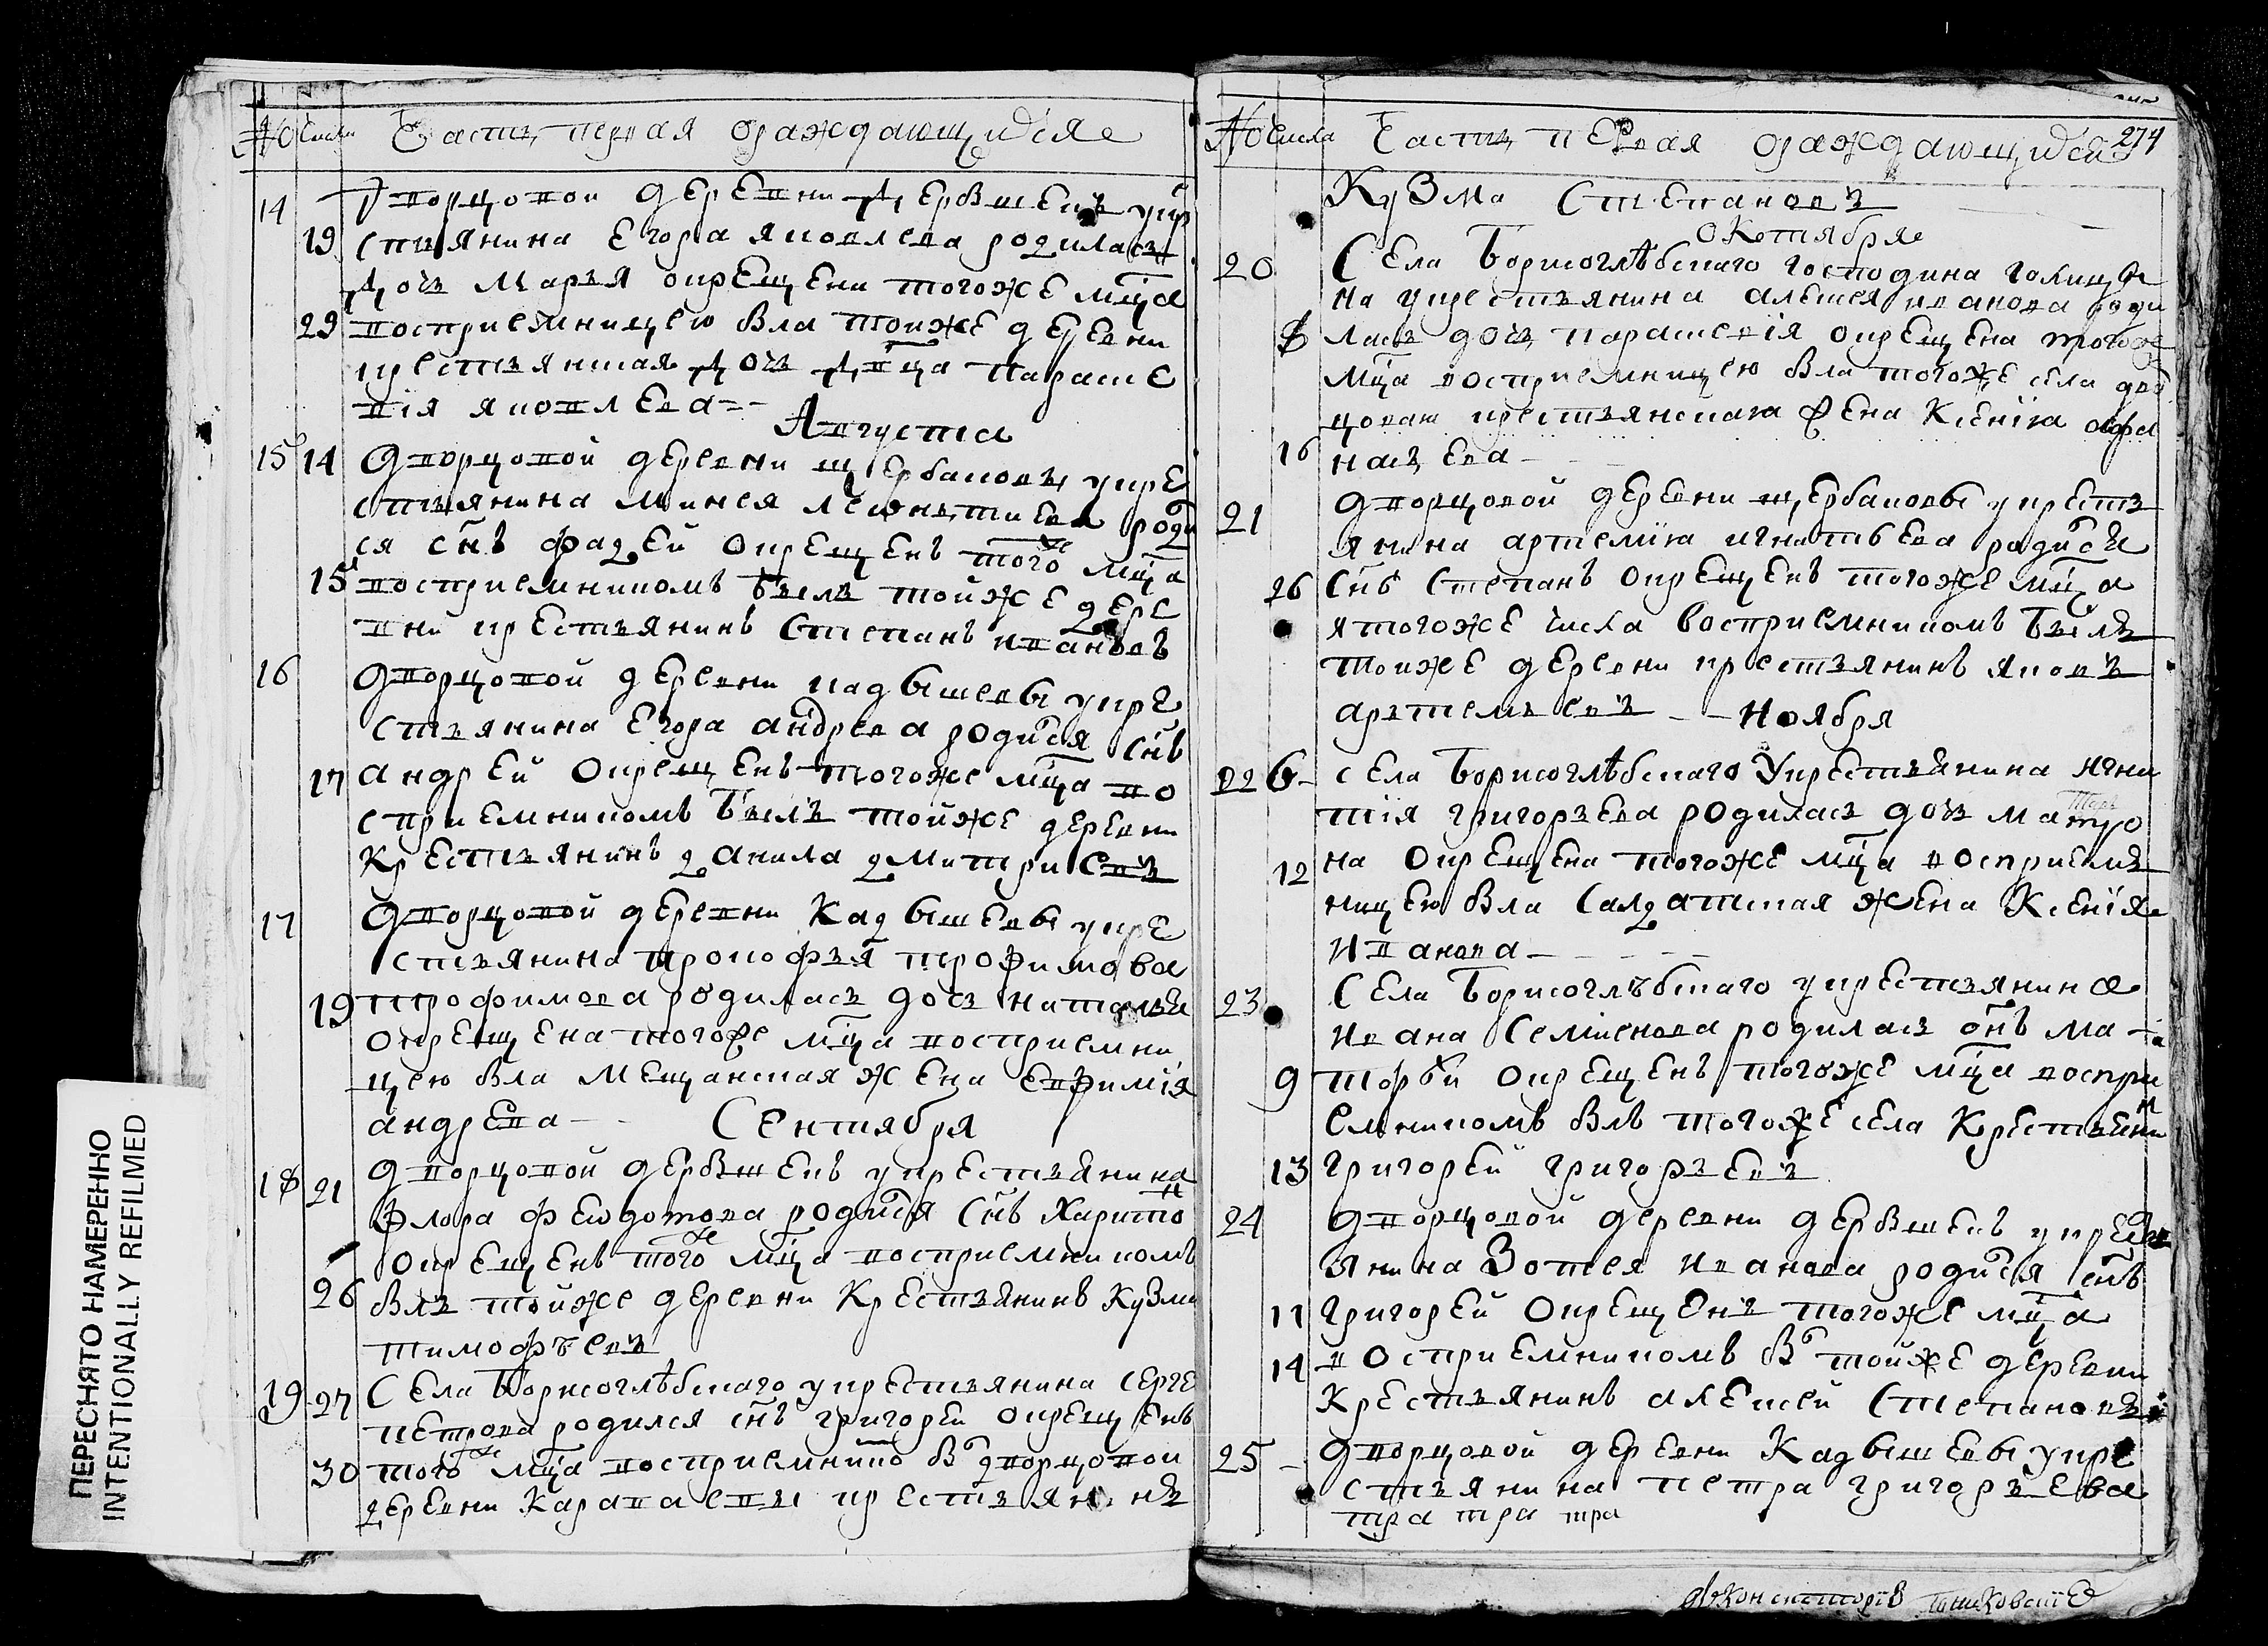 № числа Часть первая ораждающихся
14 Дворцовой деревни Дербышекъ укр
19 стьянина Егора яковлева родилась
дочь Марья окрещени тогоже мца
29 восприемницею была тойже деревни
крестьянская дочь двца параске
вія яковлева
Августа
15 14 Дворцовой деревни щербаковы укре
стьянина Минея леонтиева роди
ся снъ фадей окрещенъ тогоже мца
15 восприемникомъ былъ тойже дере
вни крестьянинъ степанъ ивановъ
16 Дворцовой деревни кадышевы укре
стьянина Егора андреева родися снъ
17 андрей окрещенъ тогоже мца во
сприемникомъ былъ тойже деревни
Крестьянинъ данила дмитриевъ
17 Дворцовой деревни Кадышевы укре
стьянина прокофья трофимова
19 трофимова родилась дочь наталья
окрещена тогоже мца восприемни
цею была мещанская жена Евфимія
андреева Сентября
18 21 Дворцовой дербышекъ укрестьянина
Флора федотова родися снъ Харито
окрещенъ тогоже мца восприемникомъ
26 былъ тойже деревни Крестьянинъ Кузма
тимофъевъ
19 27 Села Борисоглѣбскаго укрестьянина серге
петрова родился снъ григореи окрещенъ
30 тогоже мца восприемнико бы дворцовои
деревни Караваевы крестьянинъ
№ числа Часть первая ораждающихся 274
Кузма Степановъ
Октября
20 Села Борисоглѣбскаго господина голицы
на укрестьянина алексея иванова роди
8 лась дочь параскевія окрещена тогоже
мца восприемницею была тогоже села дво
цоваго крестьянскага жена Ксенія афа
16 насьева
21 Дворцовой деревни щербаковы укресть
янина артемія игнатьева родися
26 снъ Степанъ окрещенъ тогоже мца
итогоже числа восприемникомъ былъ
тойже деревни крестьянинъ яковъ
артемьевъ Ноября
22 6 села Борисоглѣбскаго Укрестьянина Игна
тія григорьева родилась дочь матро
12 на окрещена тогоже мца восприемъ
ницею была Салдатская жена Ксенія
Иванова
23 Села Борисоглѣбскаго укрестьянина
Ивана Семіенова родилась снъ ма
9 тфѣй окрещенъ тогоже мца воспри
емникомъ былъ тогоже села Крестьянин
13 григорей григорьевъ
24 Дворцовой деревни дербышекъ укресть
янина Зотея Иванова родися снъ
11 григорей окрещенъ тогоже мца
14 восприемникомъ бы тойже деревни
Крестьянинъ алексей Степановъ
25 Дворцовой деревни Кадышевы укре
стьянина петра григорьева
тра тра тра
ПЕРЕСНЯТО НАМЕРЕННО
INTENTIONALLY REFILMED